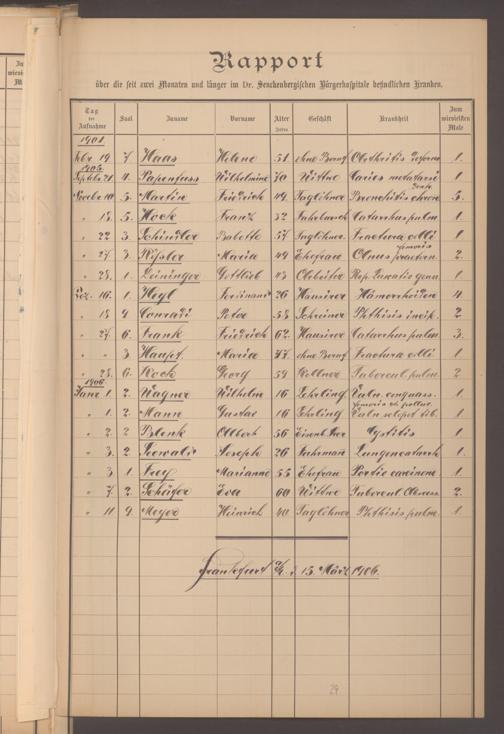 Rapport
über die seit zwei Monaten und länger im Dr. Senckenbergischen Bürgerhospitale befindlichen Kranken.
Tag der Aufnahme Saal Zuname Vorname Alter Jahre Geschäft Krankheit Zum wievielsten Male
1901
Febr. 19. 7. Haas Helene 51 ohne Beruf 1.
1905
Septbr. 21 4. Papenfuss Wilhelmine 70 Wittwe Caries metatarsi 1.
Novbr. 10 5. Martin Friedrich 49 Taglöhner Bronchitis chron. 5.
" 18 5. Hock Franz 32 Catarrhus pulm. 1
" 22 3. Schindler Babette 57 Taglöhner. Fractura colli femoris 1
" 27 3. Maria 49 Ehefrau 2.
" 28. 1. Leininger Gottlieb 43 1.
Dez. 16. 1. Heyl Ferdinand 26 Hausirer Hämorrhoiden 4
" 18 9 Conradi Peter 58 Schreiner Phthisis incip. 2.
" 27. 6. Frank Friedrich 62. Hausirer Catarrhus pulm. 3.
" " 3 Haupt Maria 77 ohne Beruf Fractura colli femoris et pollic. 1.
" 28. 6. Kock Georg 59 Kellner Tubercul. pulm. 2
1906
Jan. 1. 2. Wagner Wilhelm 16 Lehrling 1.
" 1. 2. Mann Gustav 16 Lehrling 1.
" 2. 2 Blenk Albert 56 Cystitis 1
" 3. 2 Joseph 26 Fuhrmann Lungencatarrh 1.
" 3 1. Frey Marianne 55 Ehefrau Portio carcinom. 1
" 7. 2. Schäfer Eva 60 Wittwe 2.
" 11 9. Meyer Heinrich 40 Taglöhner Phthisis pulm. 1.
Frankfurt a/M. d. 15. März 1906.
29